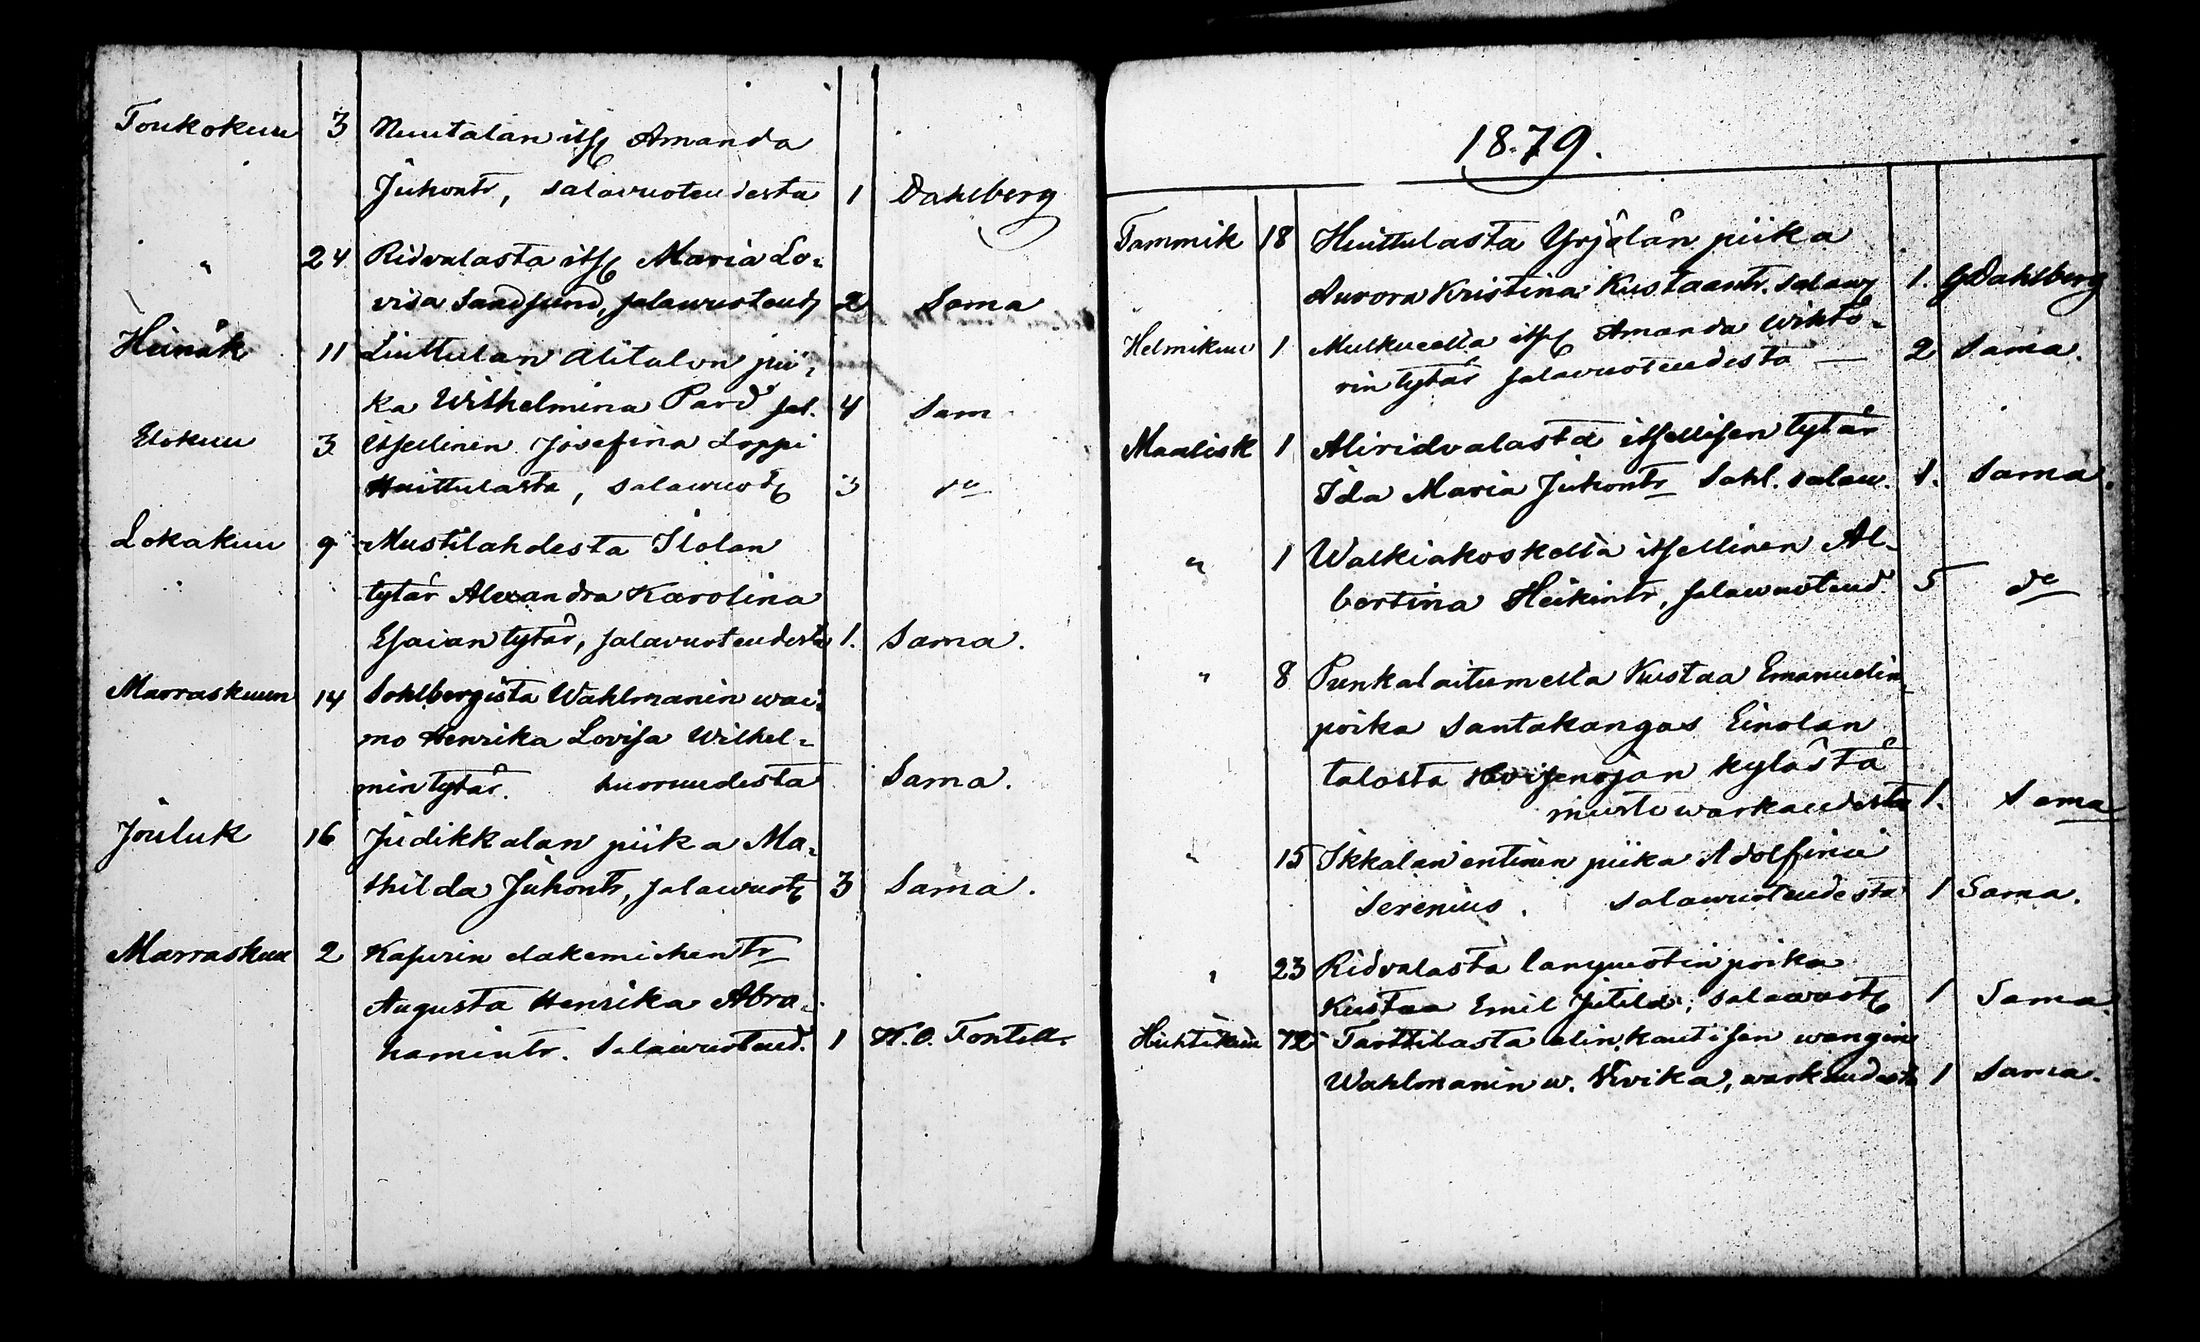 Toukokuu 3 Nuutalan itſ Amanda
Juhontr, salavuoteudesta 1 Dahlberg
" 24 Ridvalasta itſ Maria Lo-
visa Sandſund, ſalawuoteud 2 Sama
Heinäk 11 Liuttulan Alitalon pii-
ka Wilhelmina Pard ſal. 4 Sam
Elokuu 3 Itſellinen Josefina Loppi
Huittulasta, salawuot 3 do
Lokakuu 9 Mustilahdesta Ilolan
tytär Alexandra Karolina
Eſaian tytär, ſalavuoteudesta 1. Sama.
Marraskuun 14 Sohlbergista Wahlmanin wai-
mo Henrika Loviſa Wilhel-
min tytär. huoruudesta Sama.
Jouluk 16 Judikkalan piika Ma-
thilda Juhontr, ſalawuot 3 Sama.
Marraskuu 2 Kaſurin elakemiehen tr
Augusta Henrika Abra-
hamintr. Salawuoteud. 1 K.O. Fontell.
1879.
Tammik 18 Huittulasta Yrjölän piika
Aurora Kristina Kustaantr. salaw 1. GDahlberg
Helmikuu 1 itſ Amanda Wikto-
rin tytär ſalavuoteudesta — 2 Sama.
Maalisk 1 Aliridvalasta itſelliſen tytär
Ida Maria Juhontr Sahl. salaw. 1. Sama.
" 1 Walkiakoskella itſellinen Al-
bertina Heikintr, ſalawuoteud 5 do
" 8 Punkalaitumella Kustaa Emanuelin
poika Santakangas Einolan
talosta kylästä
warkaudesta 1. Sama
" 15 Ikkalan entinen piika Adolfina
Serenius. salawuoteudesta 1 Sama.
" 23 Ridvalasta lampuotin poika
Kustaa Emil Jutila, salawuot 1 Sama.
Huhtikuu 12 Tarttilasta elinkautiſen wangin
Wahlmanin w. Vivika, warkaudesta 1 Sama.